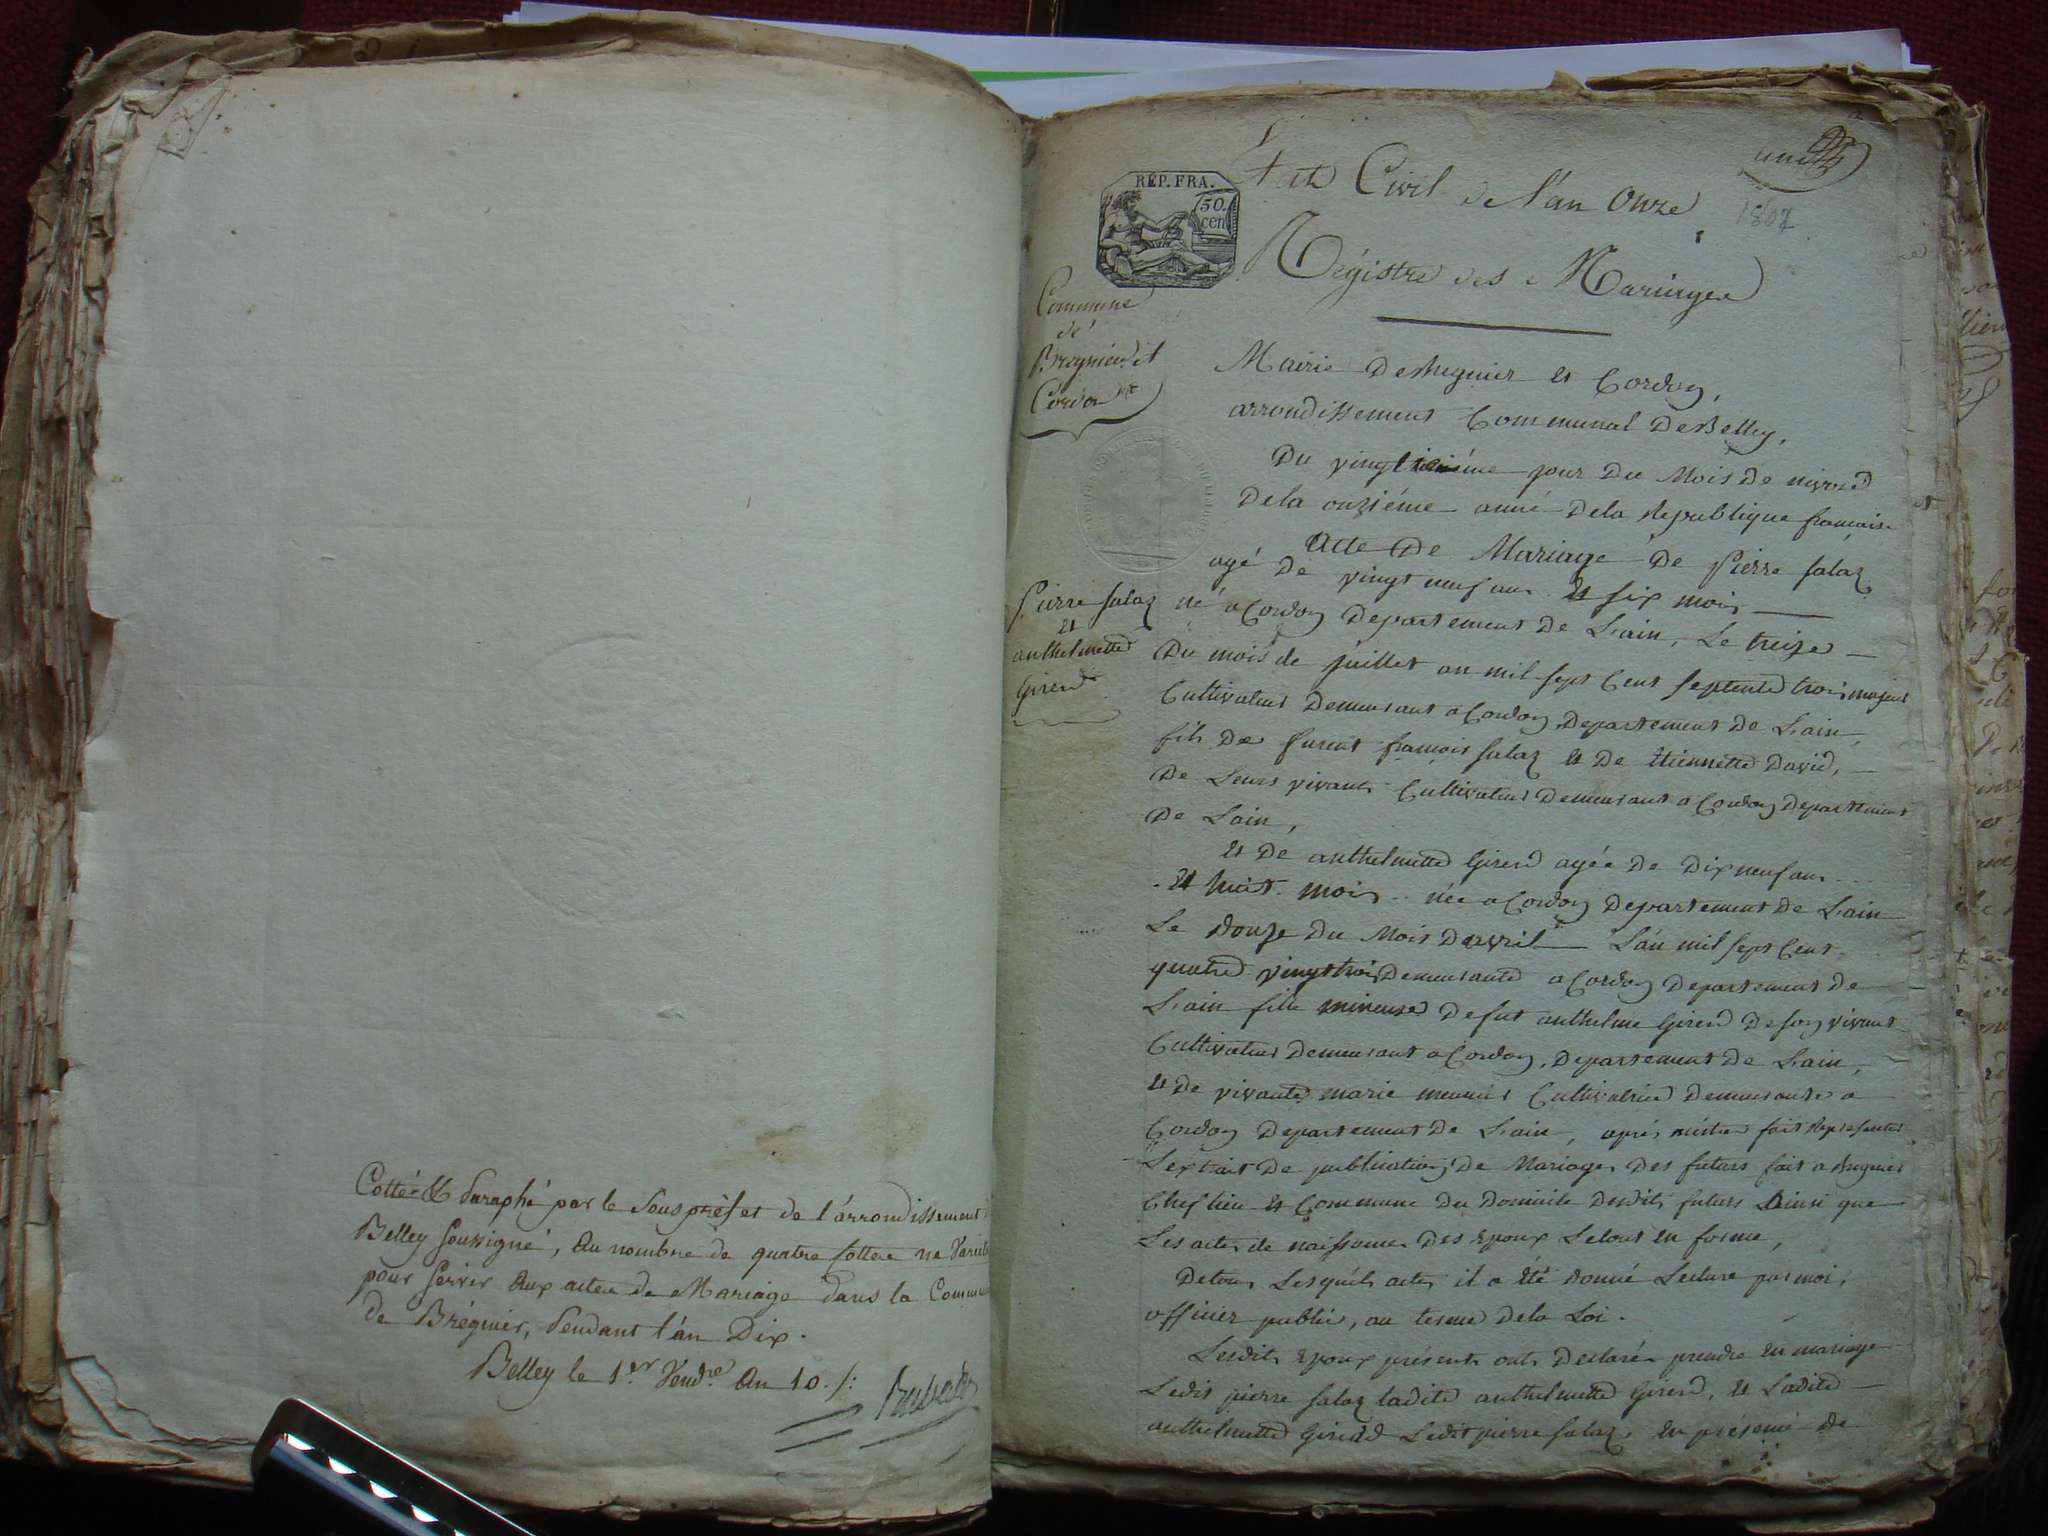 Cotté & Paraphé par le Sous préfet de l'arrondissement
Belley soussigné, au nombre de quatre cottere ne Varietur
pour servir aux actes de Mariage dans la Commune
de Brégnier, Pendant l'an Dix.
Belley le 1er Vendre an 10 ./.
REP. FRA.
50
cen
Etat Civil de l'an Onze
1802
Régistre des Mariages
Commune
de
Bregnier et
Cordon
Mairie De Bregnier et Cordon,
arrondissement Communal De Belley,
Du vingtieme jour Du Mois De nivose
De la onziéme année De la Republique française
Acte De Mariage De Pierre Salaz
agé De vingt neuf ans et six mois
Pierre Salaz
et
anthelmette
Girerd
né a Cordon Departement De L'ain, Le treize
Du mois de juillet an mil sept Cent septente trois majeur
Cultivateur Demeurant a Cordon Departement De L'ain,
fils De furent françois Salaz et De Etiennette David,
De Leurs vivants Cultivateurs Demeurant a Cordon Departement
De Lain,
et De anthelmette Girerd agée De Dix neuf ans
et huit mois née a Cordon Departement De L'ain
Le Douze Du Mois Davril L'an mil sept Cent
quatre vingt trois Demeurante a Cordon Departement De
L'ain fille mineure De fut anthelme Girerd De son vivant
Cultivateur Demeurant a Cordon, Departement De L'ain,
et De vivante marie meunier Cultivatrice Demeurante a
Cordon Departement De L'ain, après m'être fait Representer
L'extrait De publication De Mariage Des futurs fait a Bregnier
Chef lieu et Commune Du Domicile Desdits futurs Ainsi que
Les actes de naissance Des Epoux Le tout en forme,
De tous Lesquels actes il a été donné Lecture par moi,
officier public, au terme De la Loi.
Lesdits Epoux présents ont Declarés prendre en mariage
Ledit pierre Salaz ladite anthelmette Girerd, et Ladite
anthelmette Girerd Ledit pierre Salaz, en présence De